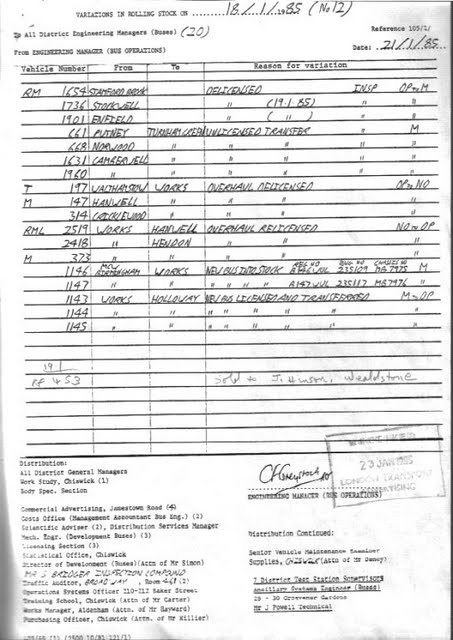 VARIATIONS IN ROLLING STOCK ON 18/1/1985 (No 12)
To All District Engineering Managers (Buses) (20)
Reference 105/1/
From ENGINEERING MANAGER (BUS OPERATIONS)
Date: 21/1/85
Vehicle Number From To Reason for variation
RM 1654 STAMFORD BROOK DELICENSED INSP OP to M
1736 STOCKWELL " (19.1.85) " "
1901 ENFIELD " ( " ) " "
661 PUTNEY TURNHAM GREEN UNLICENSED TRANSFER " M
668 NORWOOD " " " " "
1631 CAMBERWELL " " " " "
1960 " " " " " "
T 197 WALTHAMSTOW WORKS OVERHAUL DELICENSED OP to NO
M 147 HANWELL " " " "
314 CRICKLEWOOD " " " "
RML 2519 WORKS HANWELL OVERHAUL RELICENSED NO to OP
2418 " HENDON " " "
M 373 " " " " "
REG NO BODY NO CHASSIS NO
1146 MCW BIRMINGHAM WORKS NEW BUS INTO STOCK B146WUL 235109 MB7975 M
1147 " " " " " " B147WUL 235117 MB7976 "
1143 WORKS HOLLOWAY NEW BUS LICENSED AND TRANSFERRED M to OP
1144 " " " " " " " "
1145 " " " " " " " "
RF 453 Sold to J. Hinson, Wealdstone
Distribution:
All District General Managers
Work Study, Chiswick (1)
Body Spec. Section
23 JAN 1985
LONDON TRANSPORT
ADVERTISING
ENGINEERING MANAGER (BUS OPERATIONS)
Commercial Advertising, Jamestown Road (4)
Costs Office (Management Accountant Bus Eng.) (2)
Scientific Adviser (2), Distribution Services Manager
Mech. Engr. (Development Buses) (3)
Licensing Section (3)
Statistical Office, Chiswick
Director of Development (Buses)(Attn of Mr Simon)
MR S BRIDGER INSPECTION COMPOUND
Traffic Auditor, BROADWAY, Room
Operations Systems Officer 210-212 Baker Street
Training School, Chiswick (Attn of Mr Carter)
Works Manager, Aldenham (Attn of Mr Hayward)
Purchasing Officer, Chiswick (Attn of Mr Hillier)
Distribution Continued:
Senior Vehicle Maintenance Examiner
Supplies, CHISWICK (Attn of Mr Dancy)
7 District Test Station Supervisors
Ancillary Systems Engineer (Buses)
28 - 30 Grosvenor Gardens
Mr J Powell Technical